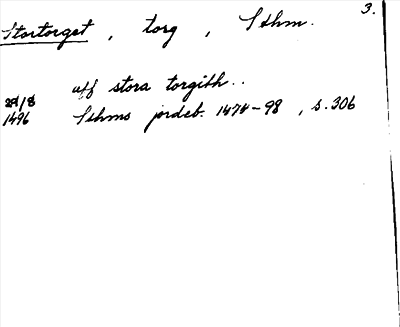 Stortorget, torg, Sthm. 3.
aff stora torgith..
/8
1496 Sthms jordeb. 1474-98, s. 306